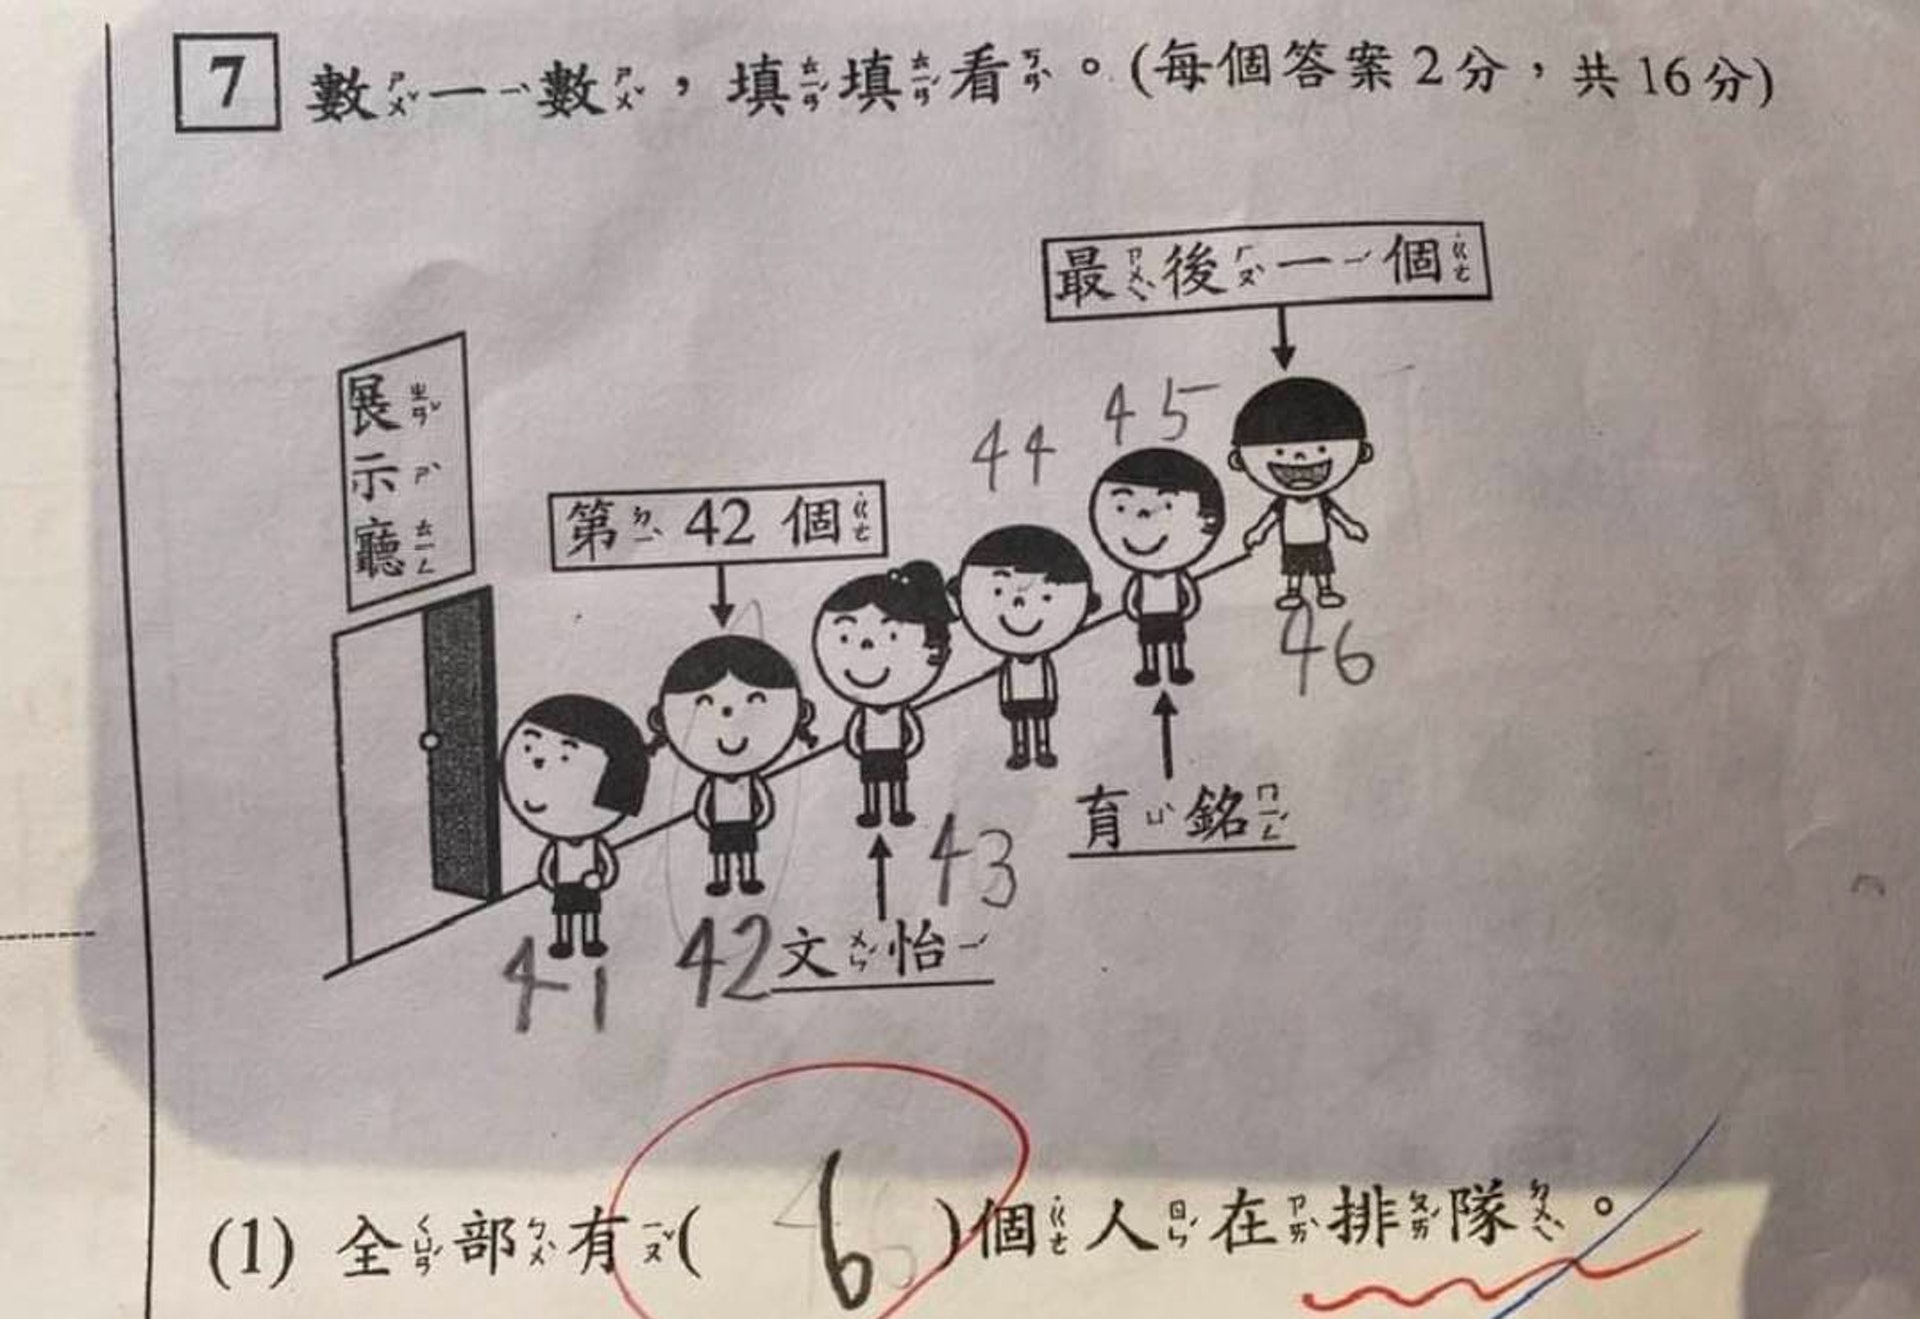 7 數ㄕㄨˇ一ㄧˋ數ㄕㄨˇ，填ㄊㄧㄢˊ填ㄊㄧㄢˊ看ㄎㄢˋ。(每個答案2分，共16分)
最ㄗㄨㄟˋ後ㄏㄡˋ一ㄧˊ個˙ㄍㄜ
45
44
展ㄓㄢˇ示ㄕˋ廳ㄊㄧㄥ
第ㄉㄧˋ42個˙ㄍㄜ
46
育ㄩˋ銘ㄇㄧㄥˊ
43
文ㄨㄣˊ怡ㄧˊ
42
41
(1) 全ㄑㄩㄢˊ部ㄅㄨˋ有ㄧㄡˇ( 6 )個˙ㄍㄜ人ㄖㄣˊ在ㄗㄞˋ排ㄆㄞˊ隊ㄉㄨㄟˋ。